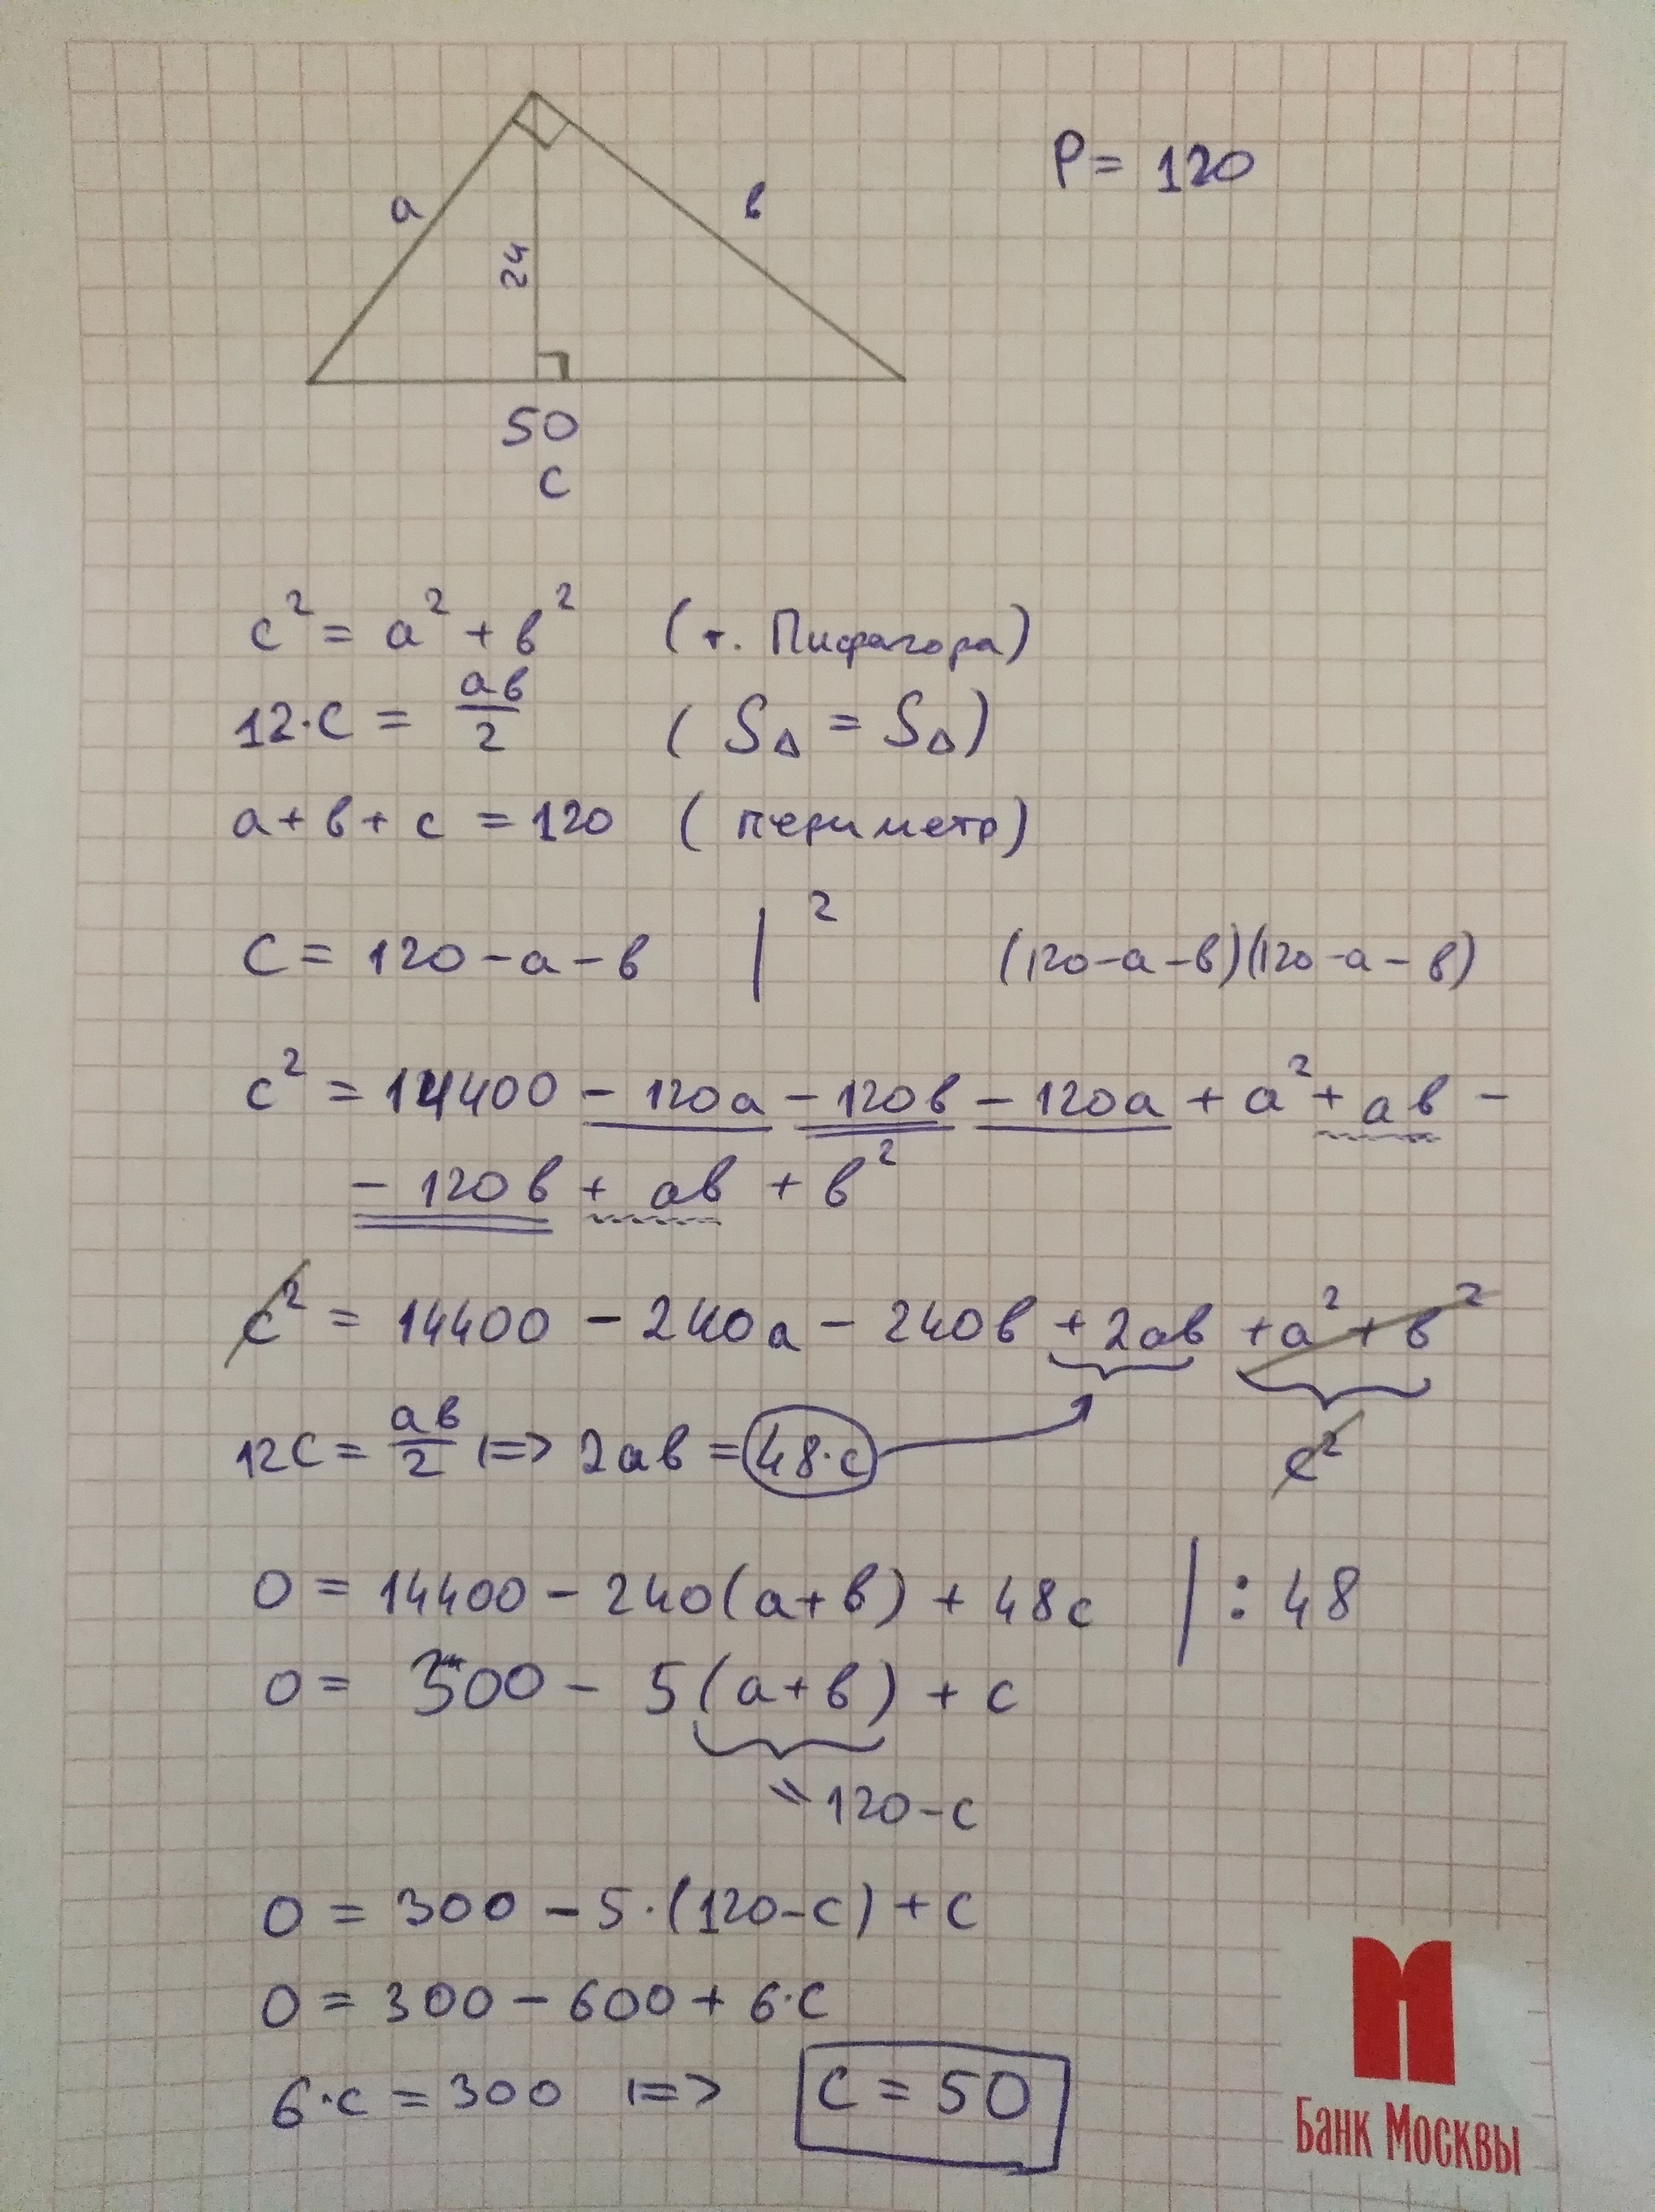 P = 120
a
в
24
50
c
c² = a² + в² (т. Пифагора)
12·c = aв/2 (S△ = S△)
a + в + c = 120 (периметр)
c = 120 - a - в |² (120-a-в)(120-a-в)
c² = 14400 - 120a - 120в - 120a + a² + aв -
- 120в + aв + в²
c² = 14400 - 240a - 240в + 2aв + a² + в²
c²
12c = aв/2 |=> 2aв = 48·c
0 = 14400 - 240(a+в) + 48c | : 48
0 = 300 - 5(a+в) + c
= 120-c
0 = 300 - 5·(120-c) + c
0 = 300 - 600 + 6·c
6·c = 300 |=> c = 50
Банк Москвы